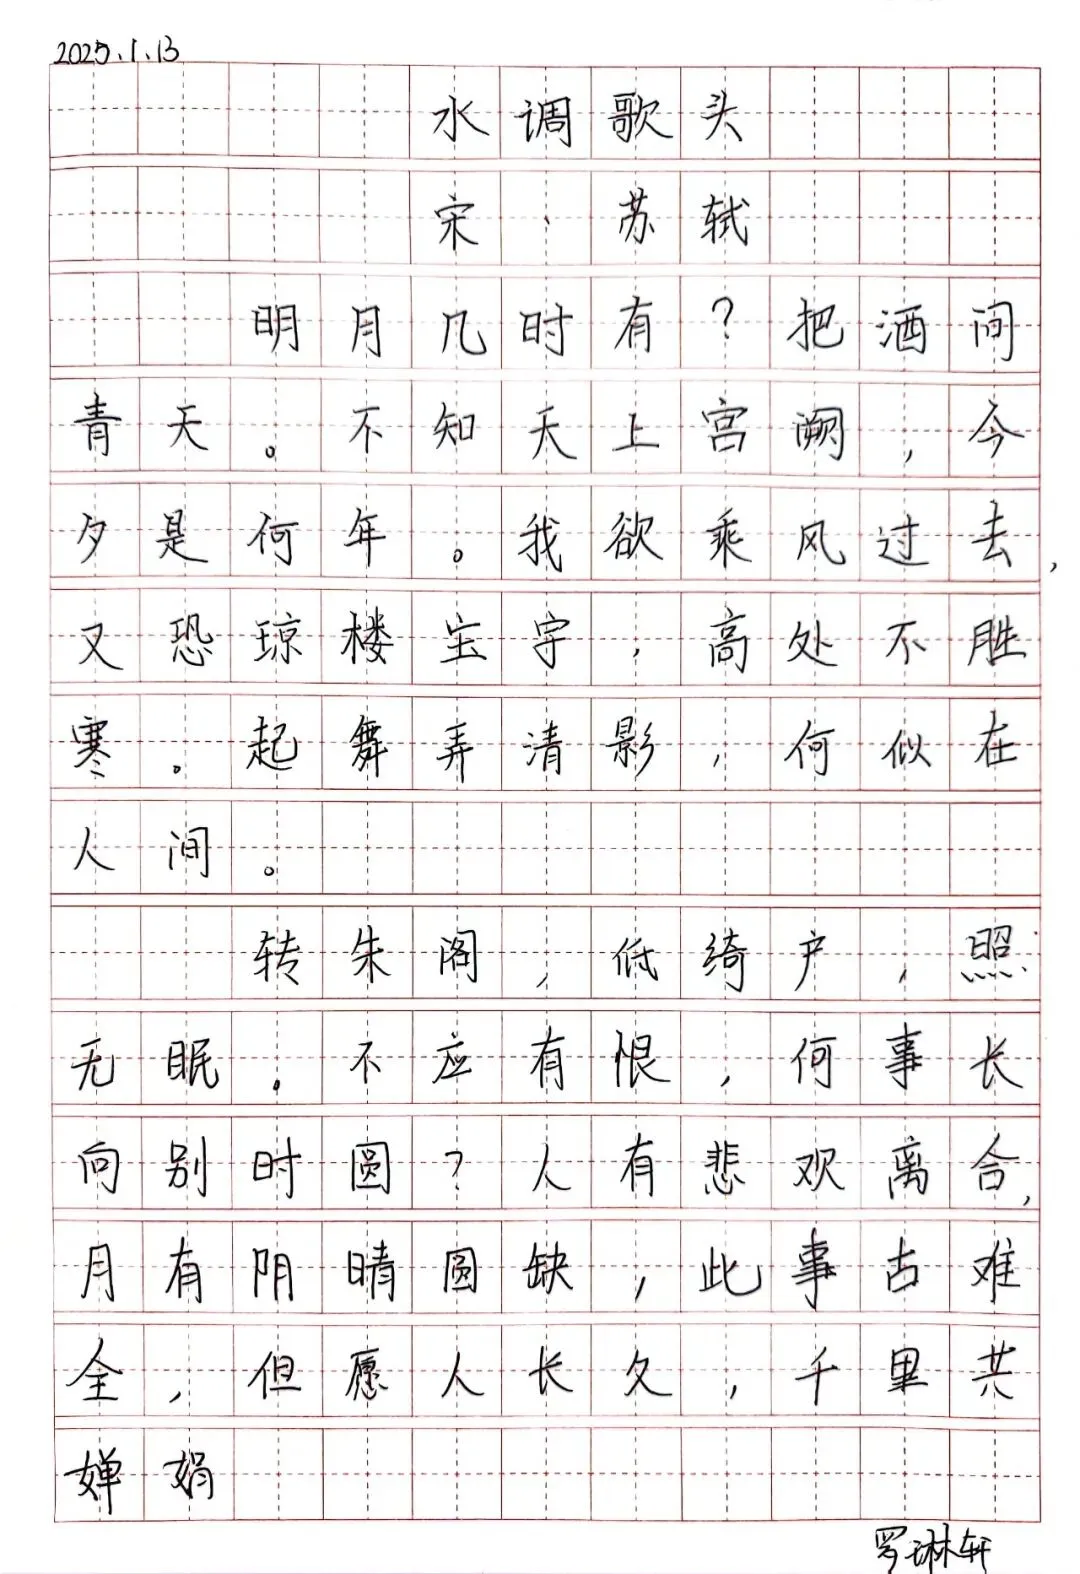 2025.1.13
水调歌头
宋、苏轼
明月几时有？把酒问
青天。不知天上宫阙，今
夕是何年。我欲乘风过去，
又恐琼楼宝宇，高处不胜
寒。起舞弄清影，何似在
人间。
转朱阁，低绮户，照
无眠。不应有恨，何事长
向别时圆？人有悲欢离合，
月有阴晴圆缺，此事古难
全，但愿人长久，千里共
婵娟
罗琳轩